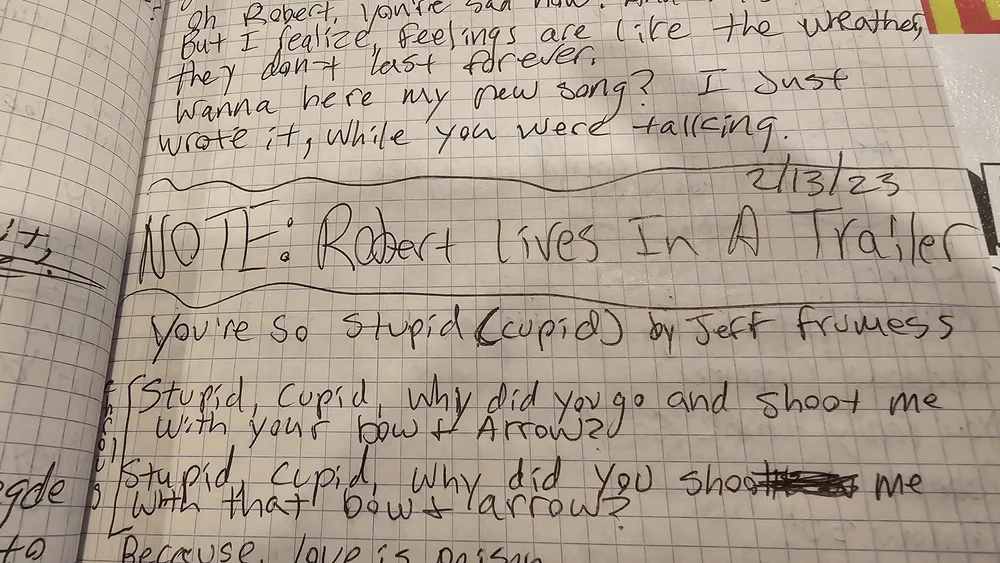 Oh Robert, you're sad now.
But I realize, feelings are like the wreather,
they don't last forever.
Wanna here my new song? I Just
wrote it, while you were tallking.
2/13/23
NOTE: Robert Lives In A Trailer
You're So Stupid (cupid) by Jeff frumess
Stupid, cupid, why did you go and shoot me
With your bow & Arrow?
Stupid, cupid, why did you shoot me
With that bow & arrow?
Because, love is poison
it,
to